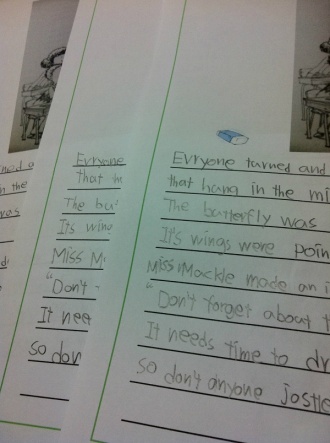 Evryone
that h
The but
Its wing
Miss M
"Don't
It nee
so don
Evryone turned and
that hang in the mi
The butterfly was
It's wings were poin
Miss Mackle made an i
"Don't forget about t
It needs time to dr
so don't anyone jostle